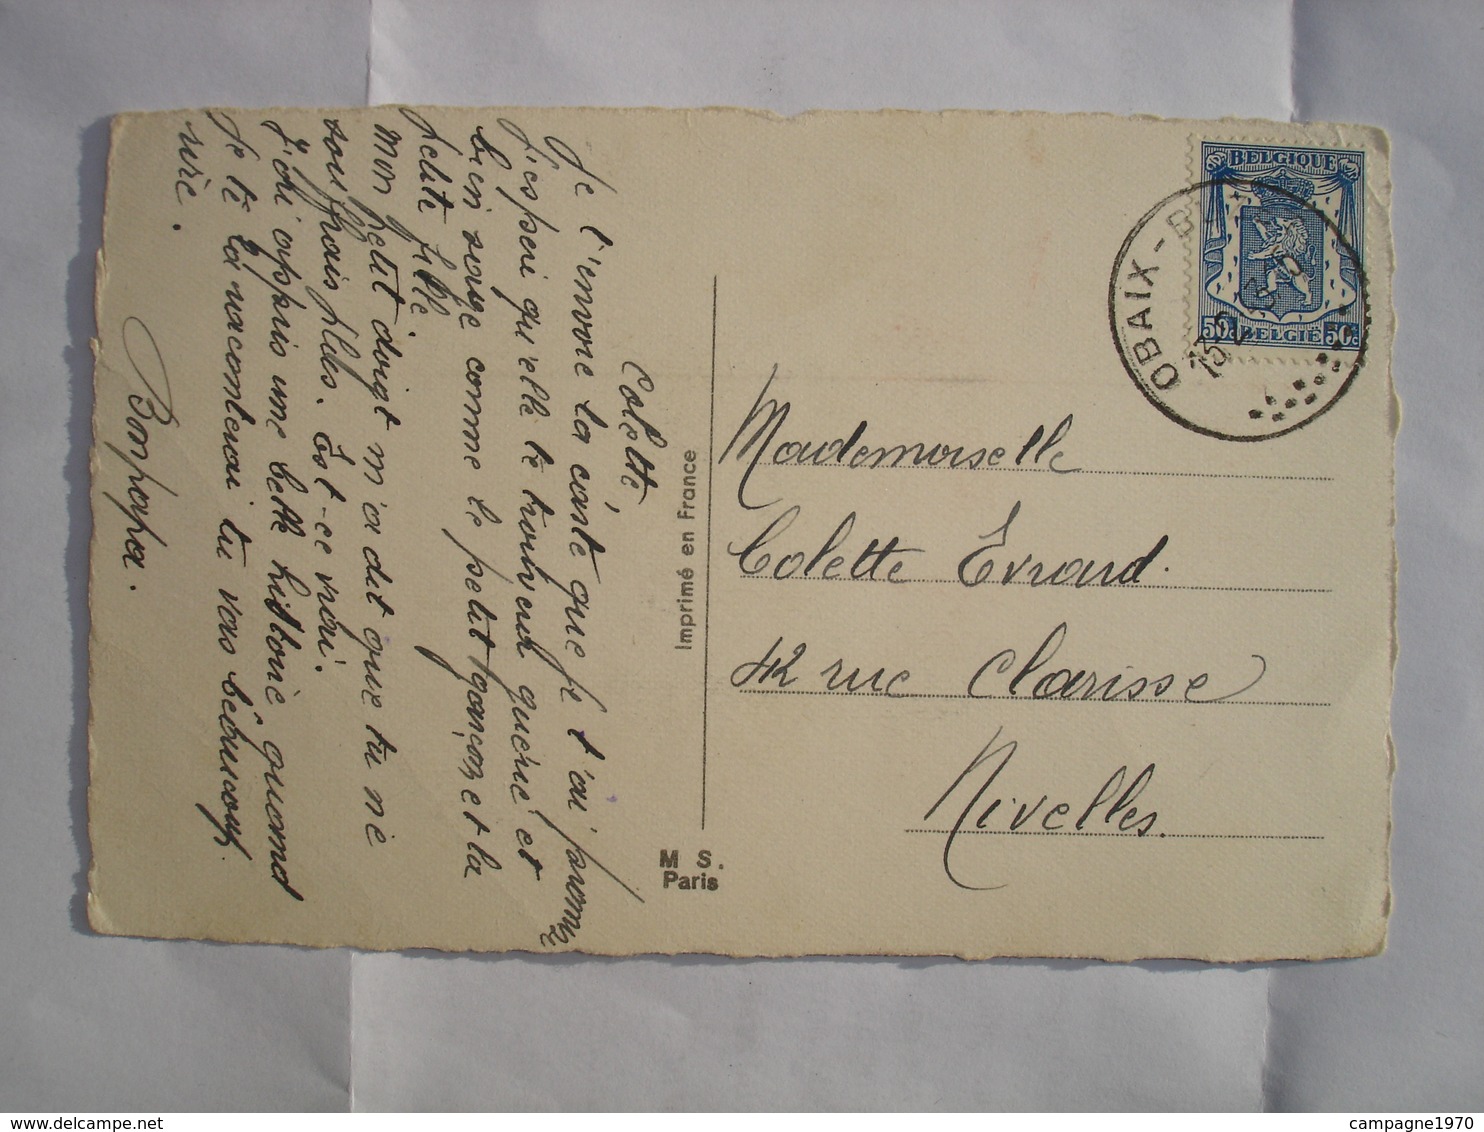 Colette,
Je t'envoie la carte que je t'ai promise
J'espère qu'elle te trouvera guérie et
bien sage comme le petit garçon et la
petite fille.
Mon petit doigt m'a dit que tu ne
souffrais plus. Est-ce vrai.
J'ai appris une belle histoire quand
Je te la raconterai tu vas beaucoup
rire.
Bonpapa.
Imprimé en France
M S.
Paris
BELGIQUE
50c BELGIË 50c
OBAIX - B
Mademoiselle
Colette Evrard.
42 rue Clarisse
Nivelles.
delcampe.net
campagne1970